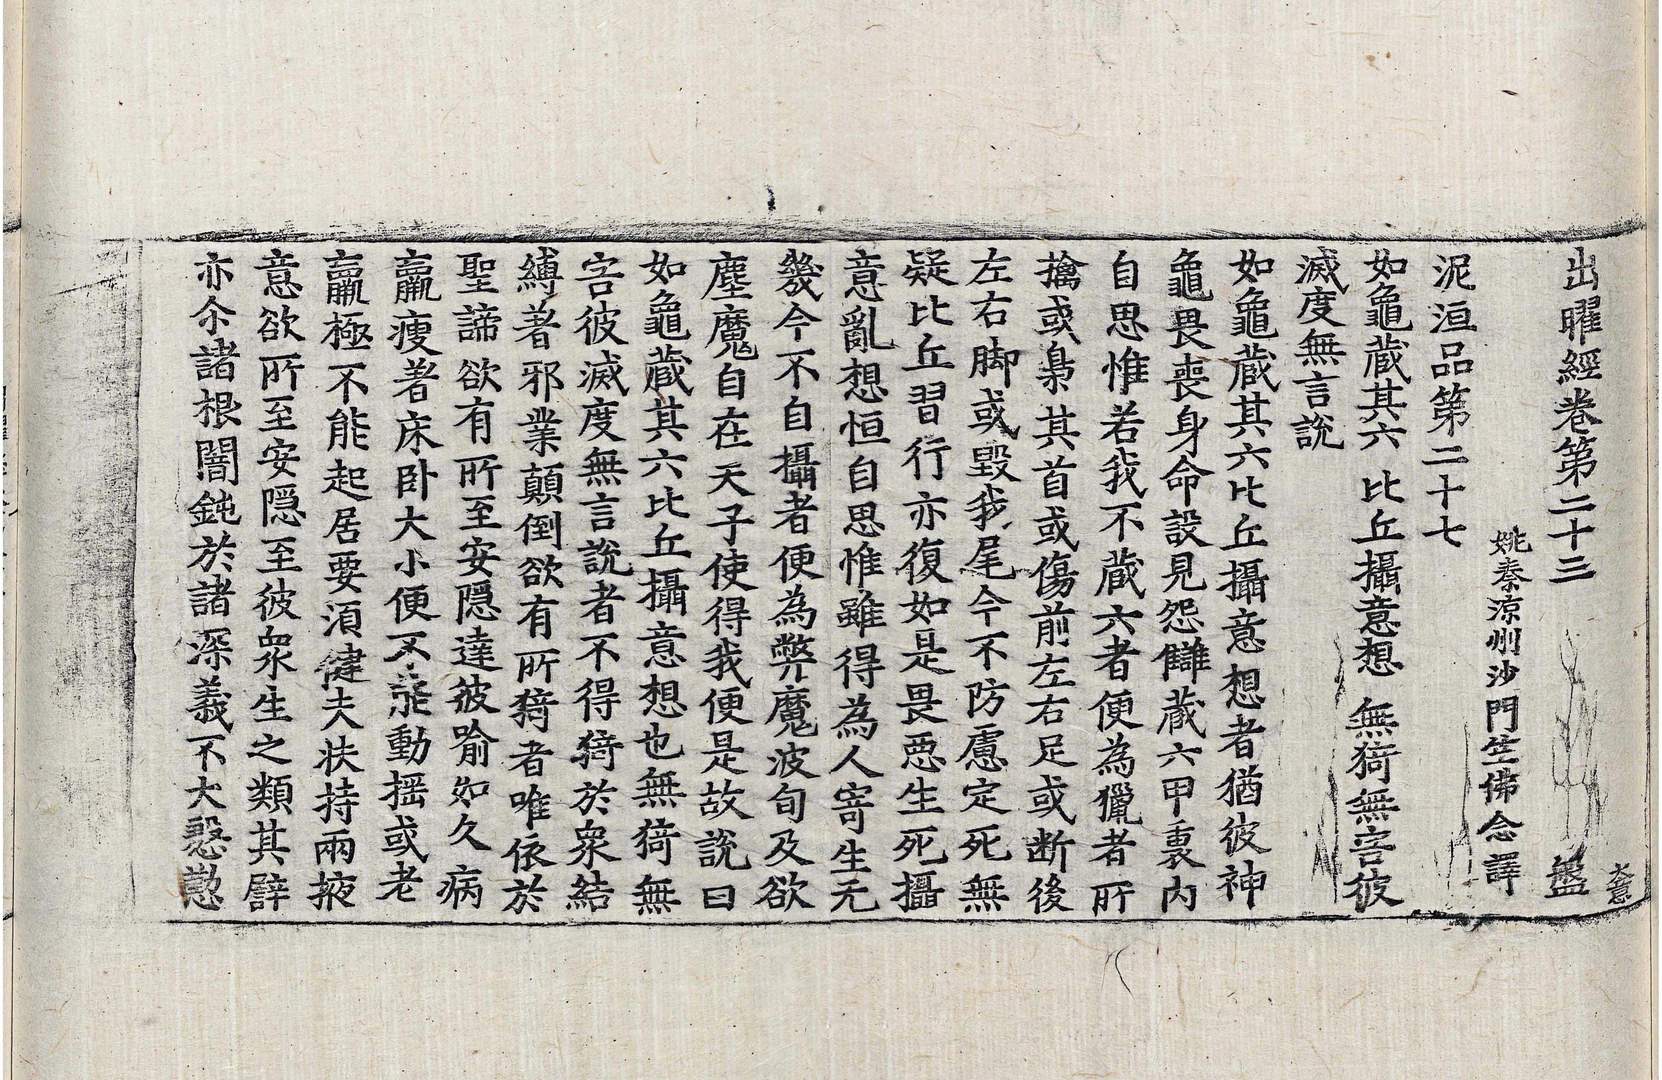 出曜經卷第二十三 盤
大意
姚秦涼州沙門竺佛念譯
泥洹品第二十七
如龜藏其六 比丘攝意想 無猗無害彼
滅度無言說
如龜藏其六比丘攝意想者猶彼神
龜畏喪身命設見怨讎藏六甲裏內
自思惟若我不藏六者便為獵者所
擒或梟其首或傷前左右足或斷後
左右脚或毀我尾今不防慮定死無
疑比丘習行亦復如是畏惡生死攝
意亂想恒自思惟雖得為人寄生无
幾今不自攝者便為弊魔波旬及欲
塵魔自在天子使得我便是故說曰
如龜藏其六比丘攝意想也無猗無
害彼滅度無言說者不得猗於衆結
縛著邪業顛倒欲有所猗者唯依於
聖諦欲有所至安隱達彼喻如久病
羸瘦著床卧大小便不能動摇或老
羸極不能起居要須健夫扶持兩掖
意欲所至安隱至彼衆生之類其譬
亦尒諸根闇鈍於諸深義不大慇懃